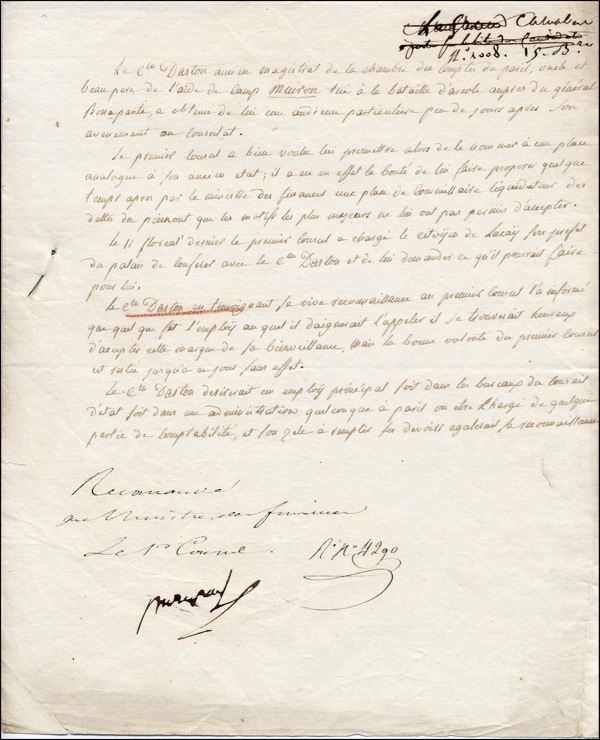 Chevalier
N.° 1008. 15. B.re
Le C.en Daston ancien magistrat de la chambre des comptes de paris, oncle et
beau pere de l'aide de camps Muiron tué à la bataille d'arcole auprès du général
Bonaparte, a obtenu de lui une audience particuliere peu de jours apres son
avenement au consulat.
Le premier consul a bien voulu lui promettre alors de le nommer à une place
analogue à son ancien etat; il a eu en effet la bonté de lui faire proposer quelque
temps apres par le ministre des finances une place de commissaire liquidateur des
dettes du piémont que les motifs les plus majeurs ne lui ont pas permis d'accepter.
Le 11 floreal dernier le premier consul a chargé le citoyen de Lucay son prefet
du palais de conferer avec le C.en Daston et de lui demander ce qu'il pourait faire
pour lui.
Le C.en Daston en temoignant sa vive reconnaissance au premier consul l'a informé
que quel que fut l'emploÿ au quel il daignerait l'appeler il se trouverait heureux
d'accepter cette marque de sa bienveillance, mais la bonne volonté du premier consul
est restée jusqu'à ce jour sans effet.
Le C.en Daston desirerait un emploÿ principal soit dans les bureaux du conseil
d'état soit dans une administration quelconque à paris ou etre chargé de quelque
partie de comptabilité, et son zele à remplir ses devoirs egalerait sa reconnaissance
Recommandé
au Ministre des finances
Le 1er Consul. N.° 4290